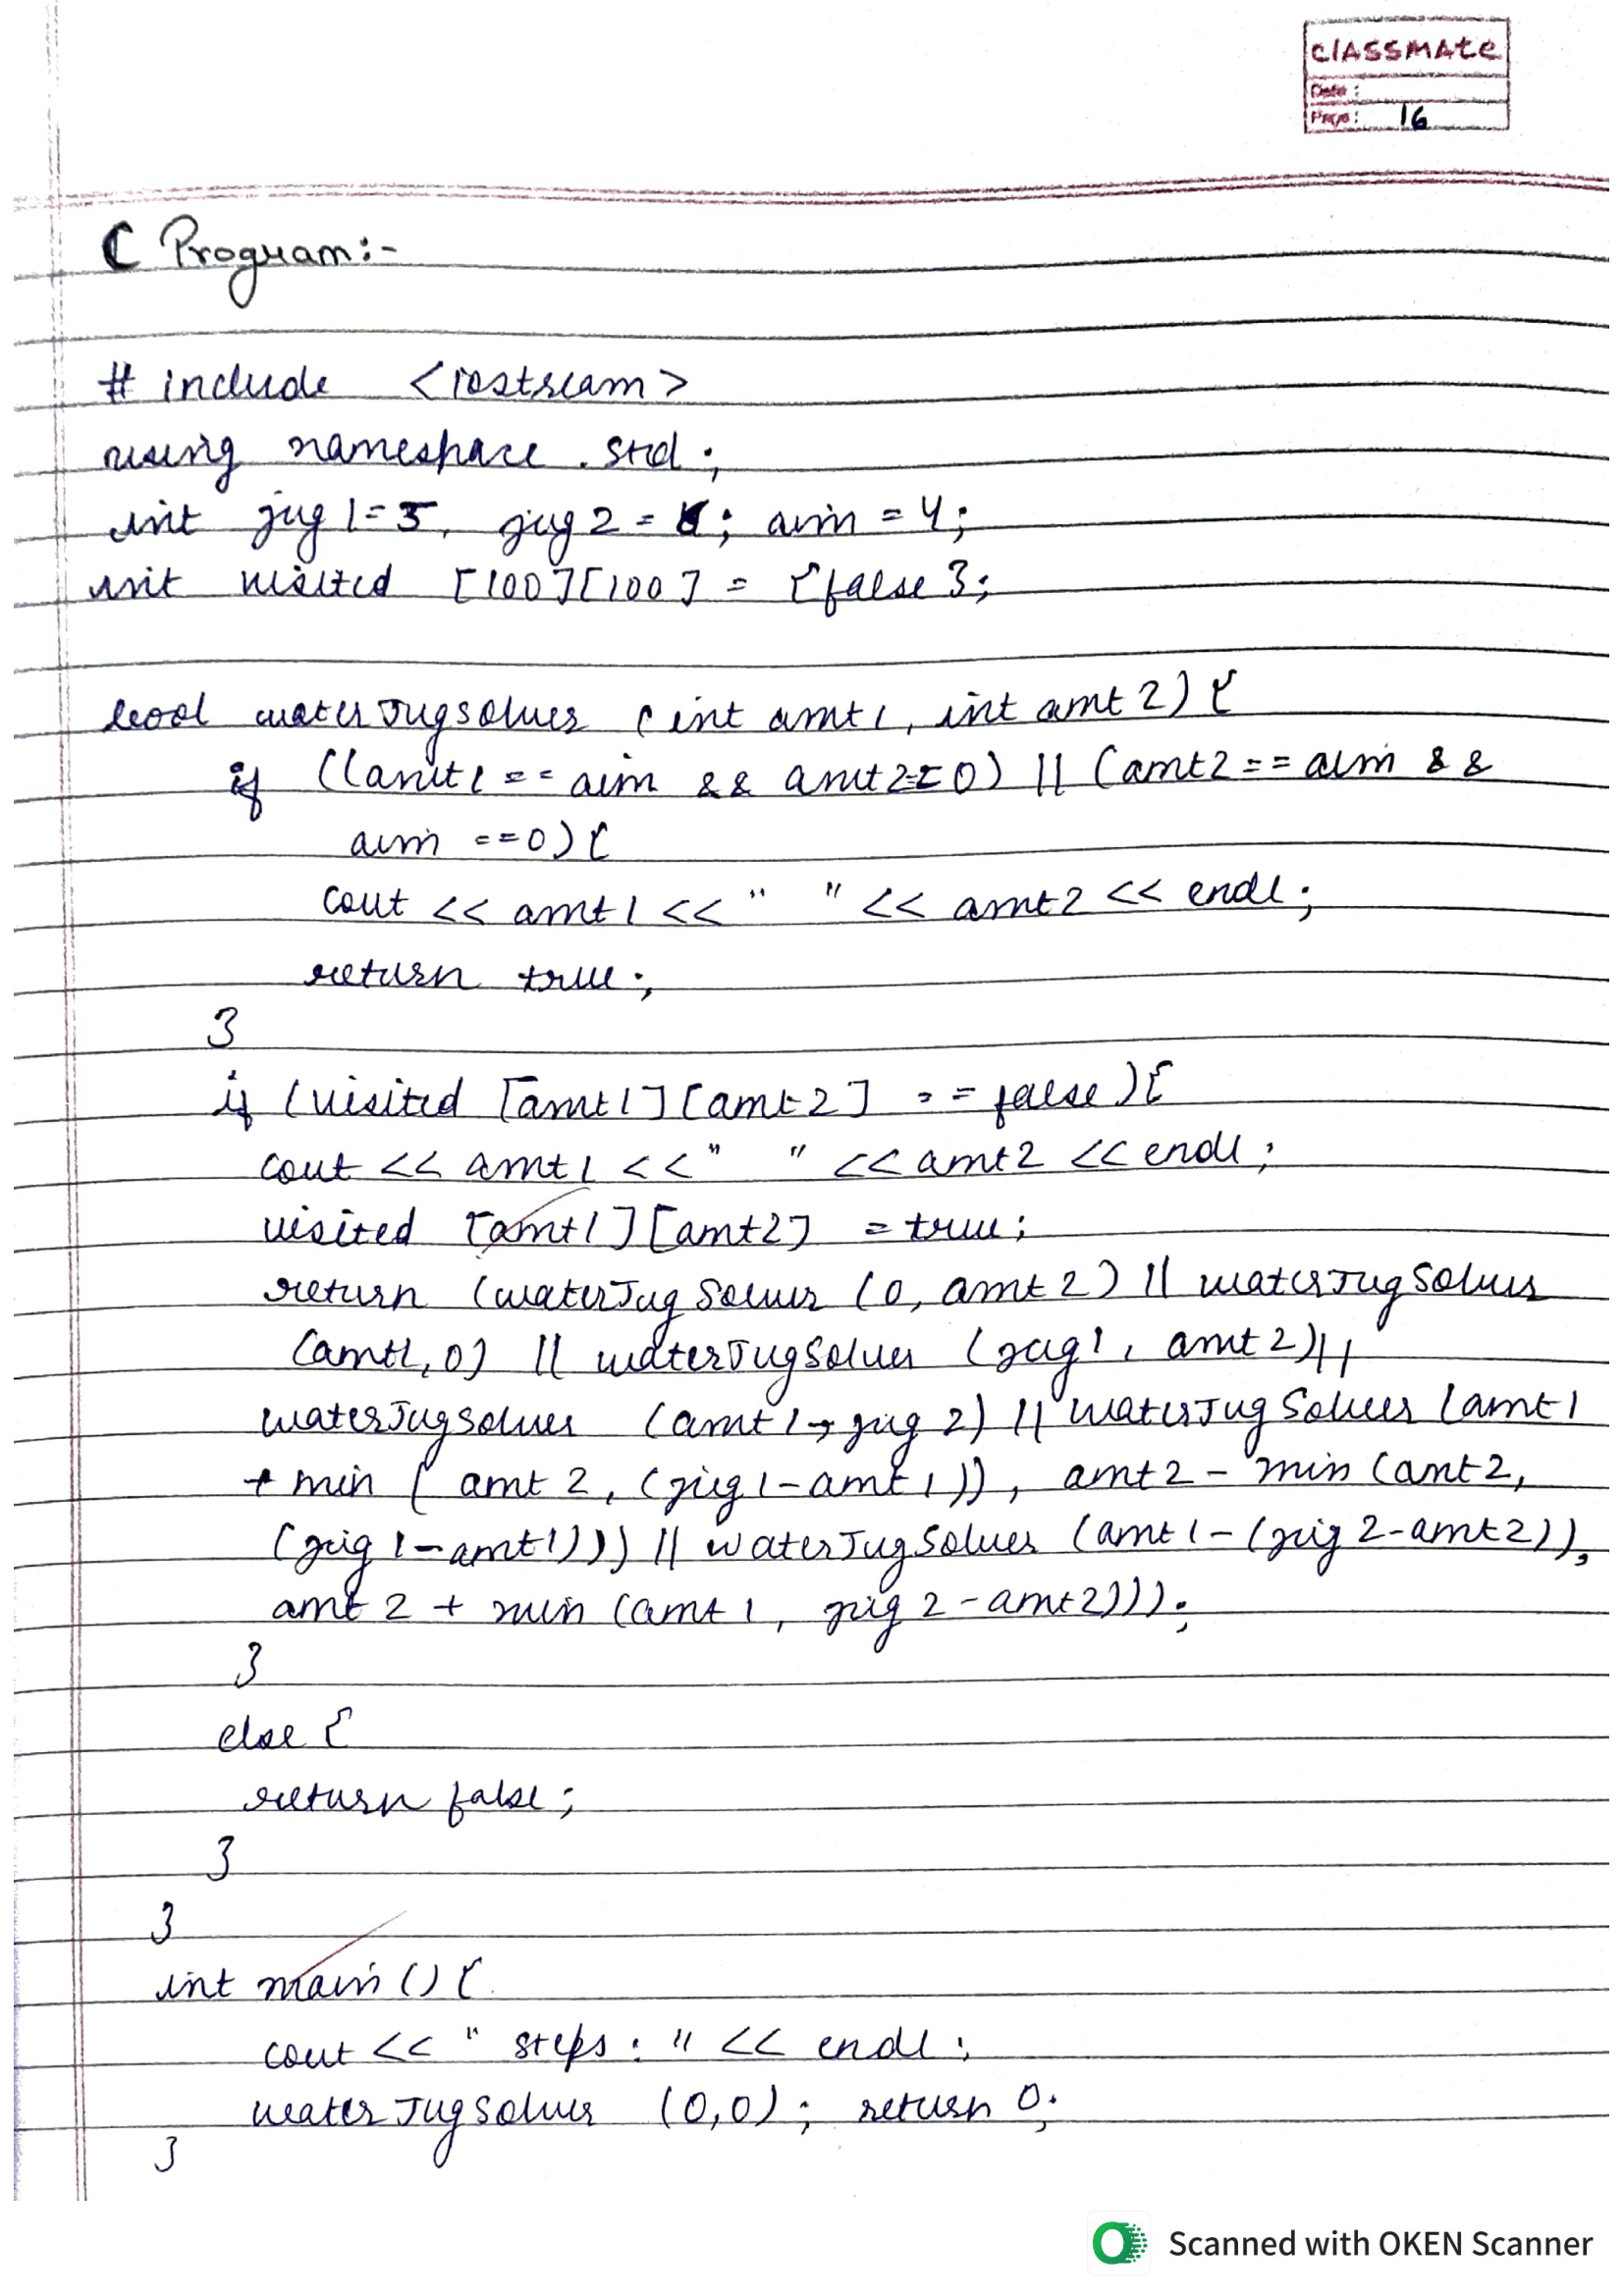 CLASSMATE
Date :
Page : 16
C Program:-
# include <iostream>
using namespace std;
int jug1=5, jug2 = ; aim = 4;
int visited [100][100] = {false};
bool waterJugsolver (int amt1, int amt2) {
if ((amt1 == aim && amt2==0) || (amt2 == aim &&
aim ==0) {
cout << amt1 << " " << amt2 << endl;
return true;
}
if (visited [amt1][amt2] == false) {
cout << amt1 << " " << amt2 << endl;
visited [amt1][amt2] = true;
return (waterJugSolver (0, amt2) || waterJugSolver
(amt1, 0) || waterJugSolver (jug1, amt2) ||
waterJugsolver (amt1, jug2) || waterJugSolver (amt1
+ min ( amt2, (jug1-amt1)), amt2 - min (amt2,
(jug1-amt1))) || waterJugSolver (amt1 - (jug2-amt2)),
amt2 + min (amt1, jug2-amt2)));
}
else {
return false;
}
}
int main () {
cout << " steps : " << endl;
waterJugsolver (0,0); return 0;
}
Scanned with OKEN Scanner